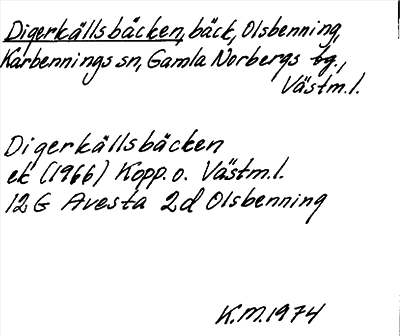 Digerkällsbäcken, bäck, Olsbenning,
Karbennings sn, Gamla Norbergs bg.,
Västm.l.
Digerkällsbäcken
ek (1966) Kopp. o. Västm.l.
12 G Avesta 2d Olsbenning
K.M. 1974